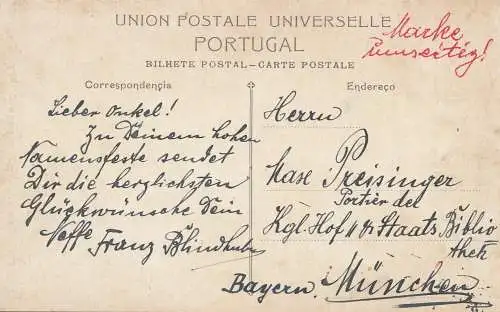 UNION POSTALE UNIVERSELLE
PORTUGAL
BILHETE POSTAL–CARTE POSTALE
Marke
umseitig!
Correspondençia
Lieber Onkel!
Zu Deinem hohen
Namensfeste sendet
Dir die herzlichsten
Glückwünsche Dein
Neffe Franz
Endereço
Herrn
Preisinger
Portier der
Kgl. Hof u Staats Biblio
thek
Bayern. München